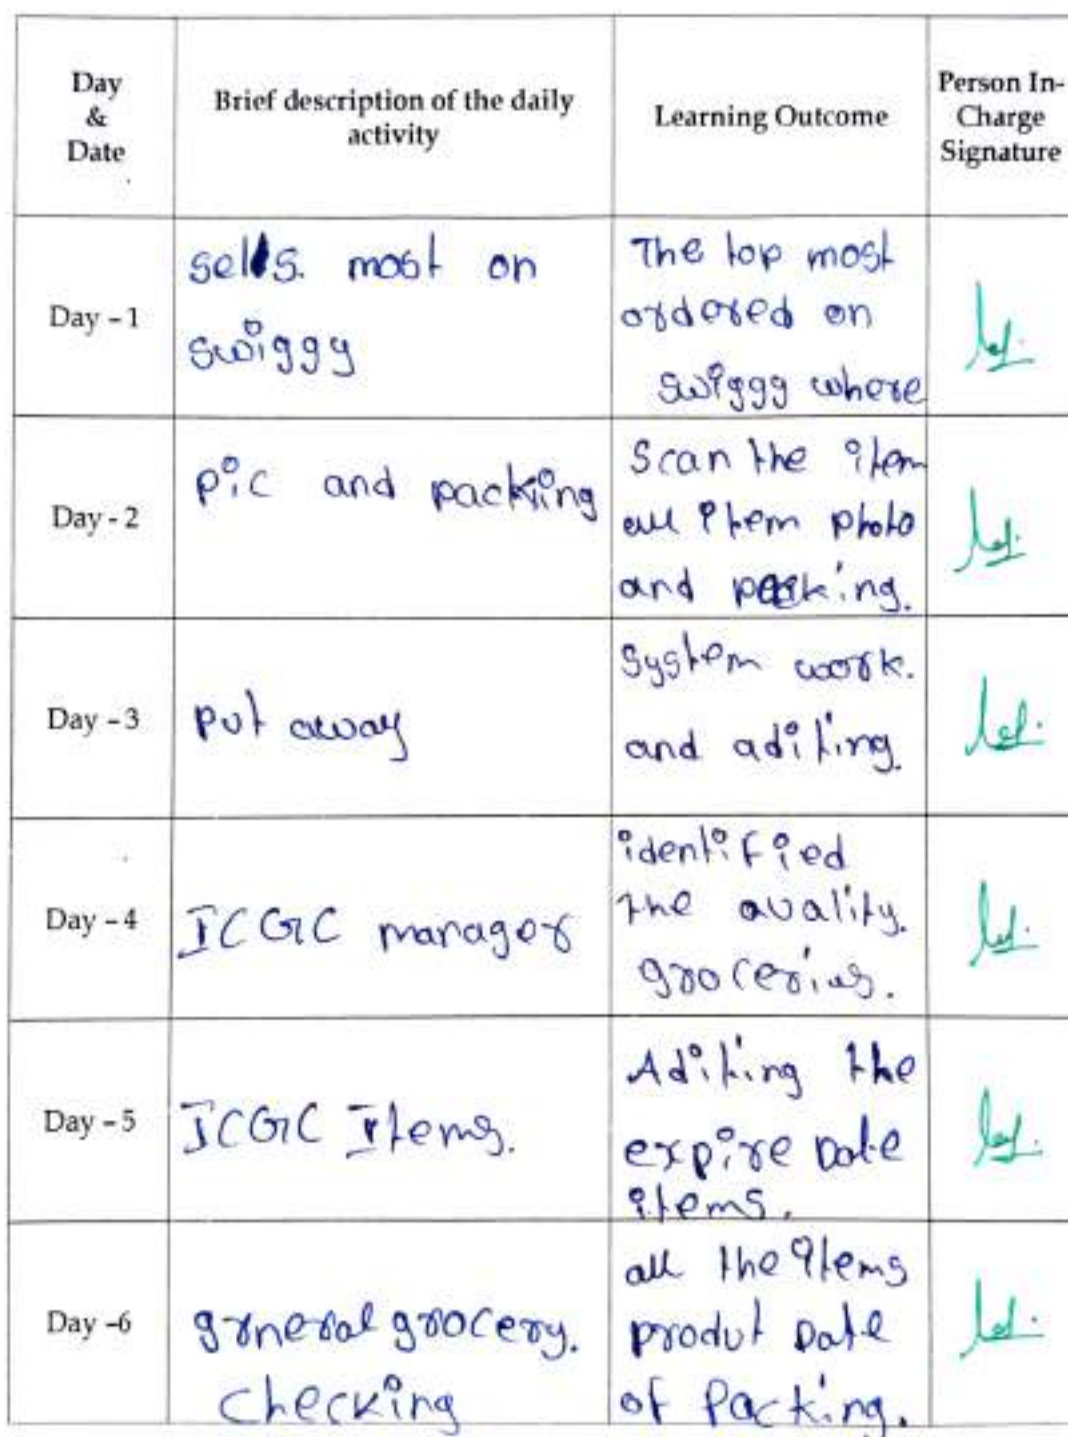 Day
&
Date
Brief description of the daily
activity
Learning Outcome
Person In-
Charge
Signature
Day - 1
sells. most on
swiggy
The top most
ordered on
swiggy where
Day - 2
pic and packing
Scan the item
all item photo
and packing.
Day - 3
put away
System work.
and aditing.
Day - 4
ICGC manager
identified
the quality.
groceries.
Day - 5
ICGC Items.
Aditing the
expire Date
items.
Day -6
grneral grocery.
checking
all the items
produt Date
of Packing.